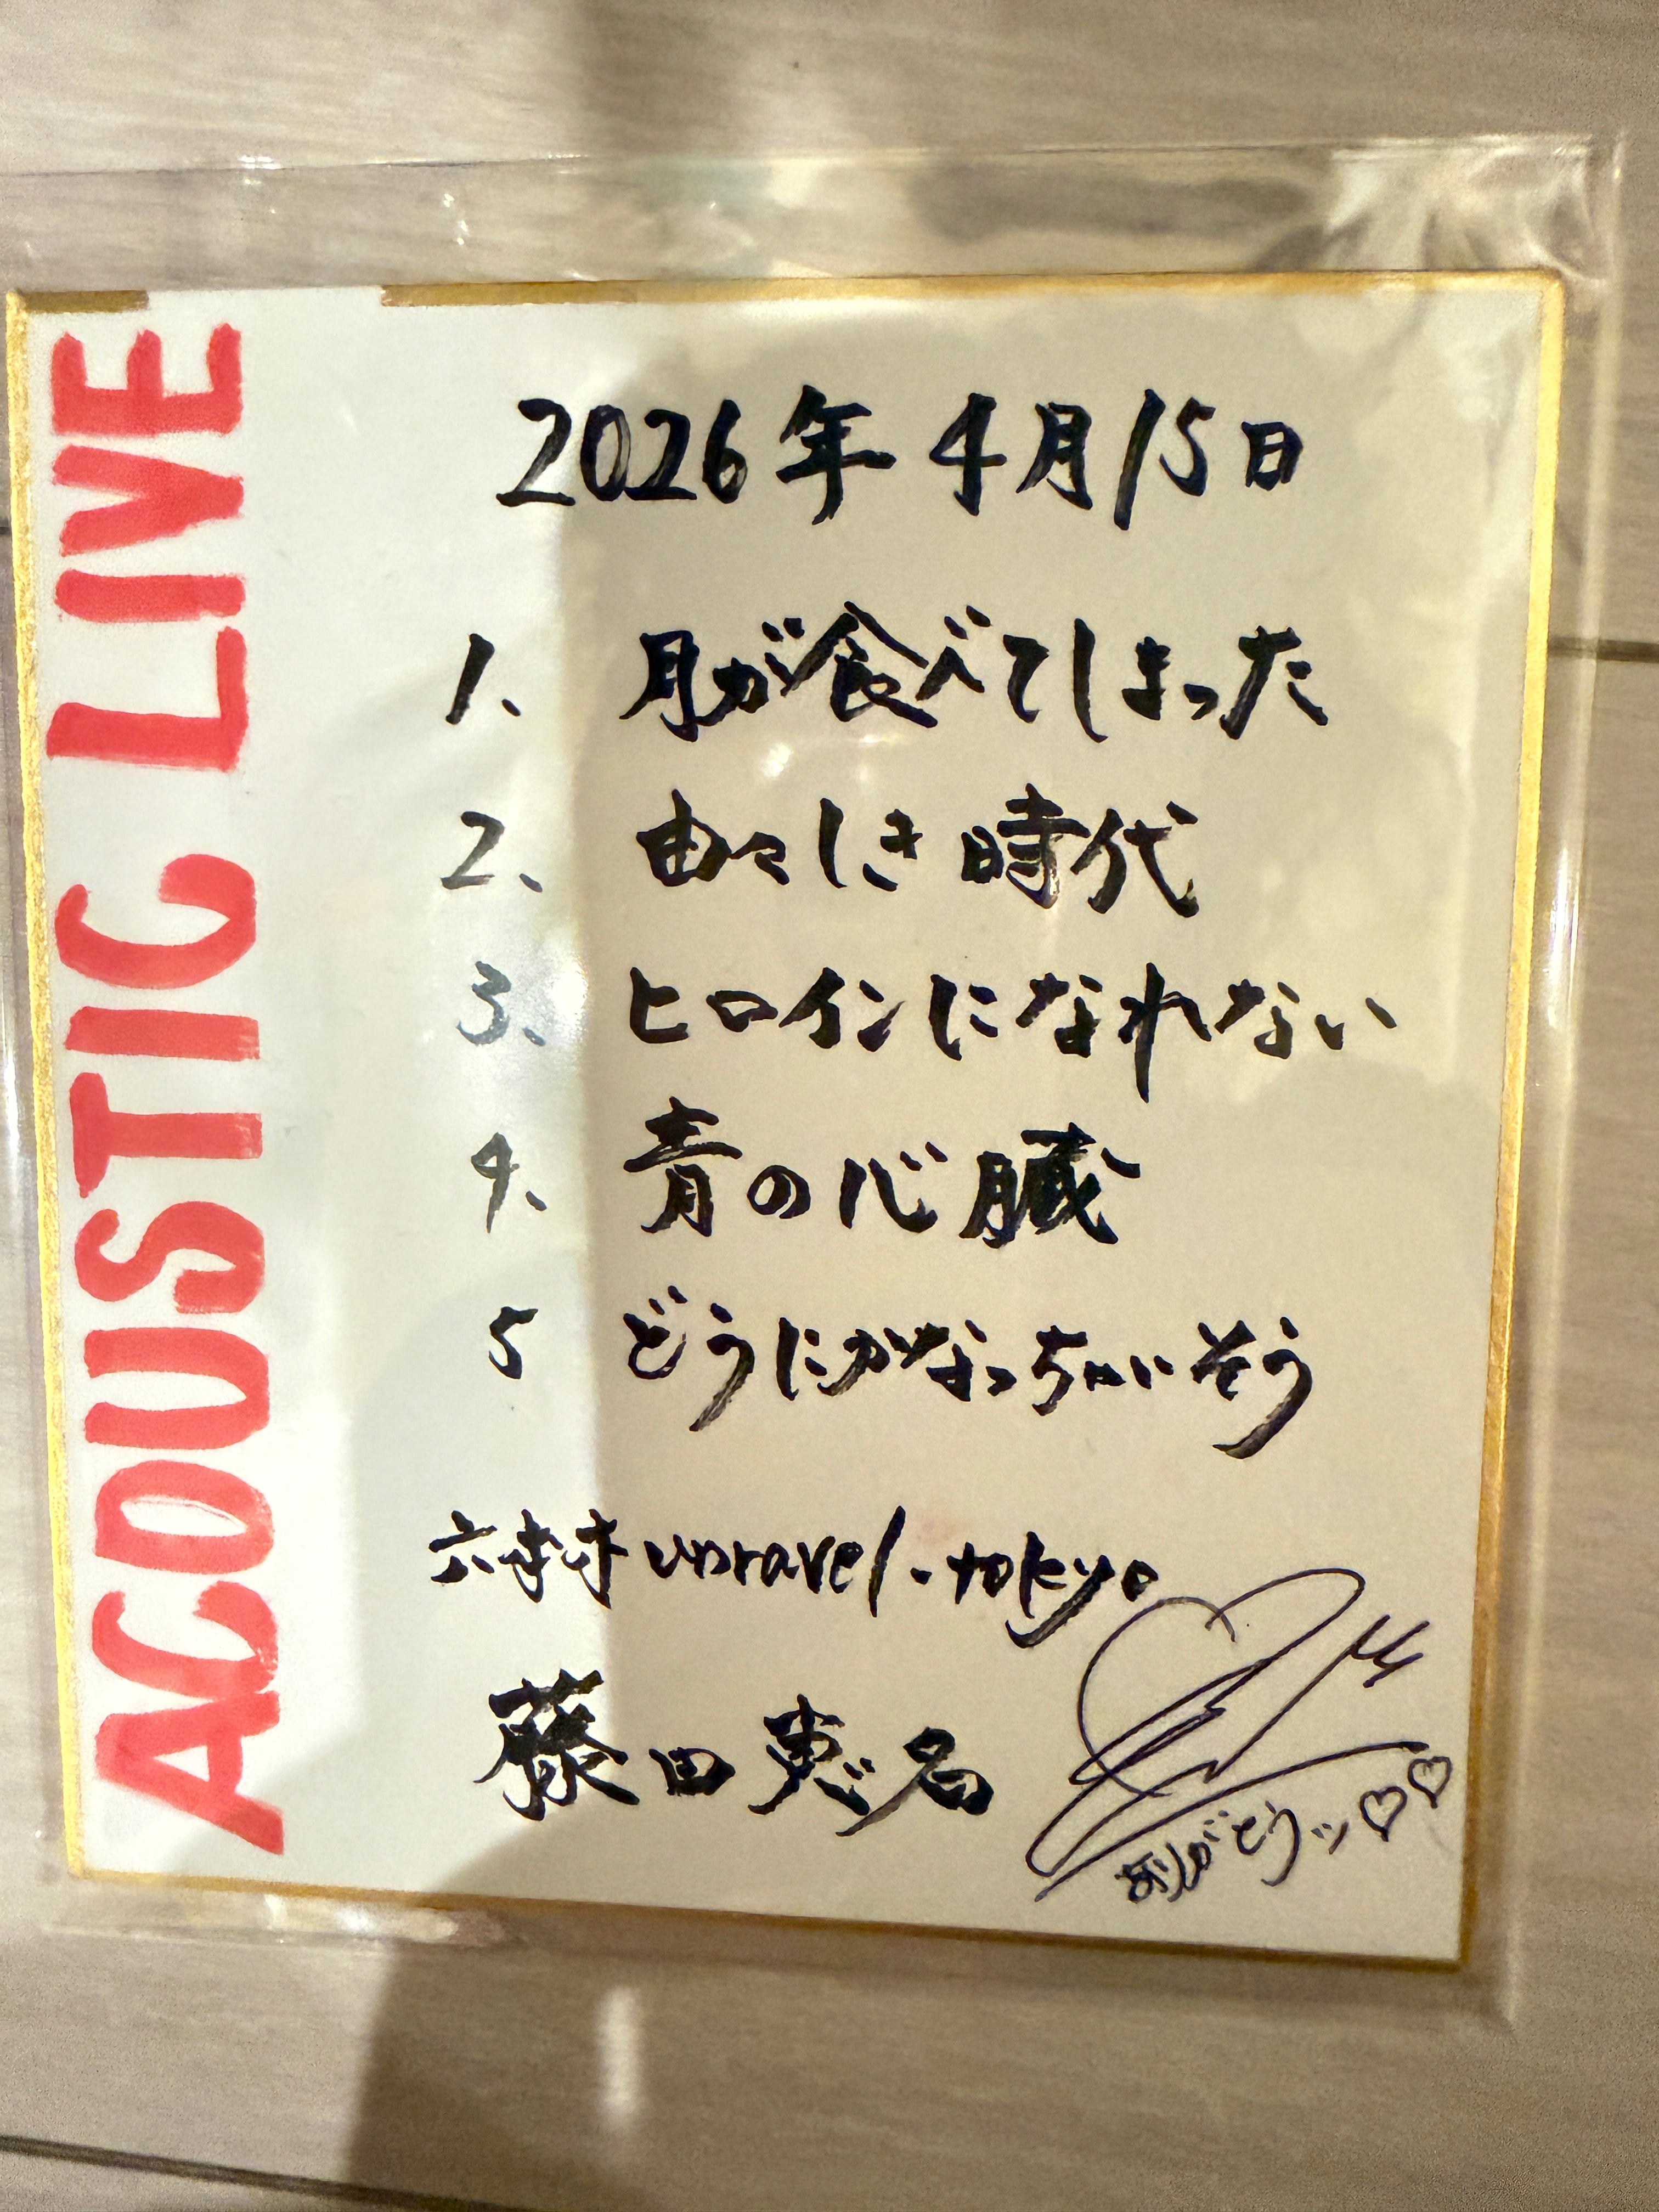 ACOUSTIC LIVE
2026年4月15日
1、月が食べてしまった
2、由々しき時代
3、ヒロインになれない
4、青の心臓
5 どうにかなっちゃいそう
六本木unravel.tokyo
藤田恵名
ありがとうッ♡♡